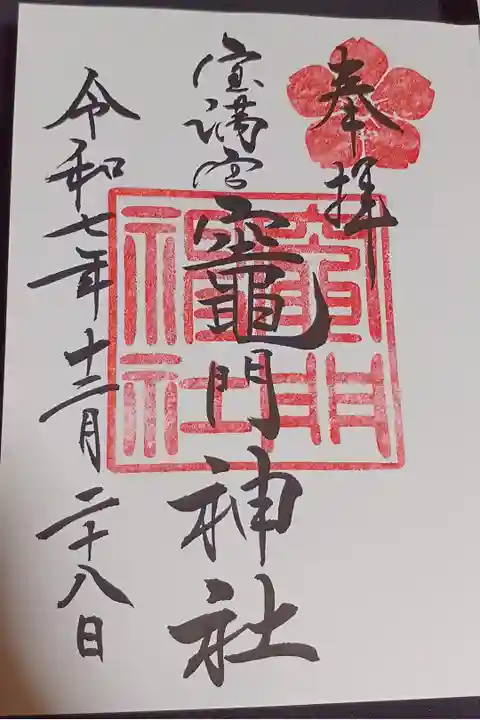 奉拝
宝満宮竈門神社
竈門
神社
令和七年十二月二十八日